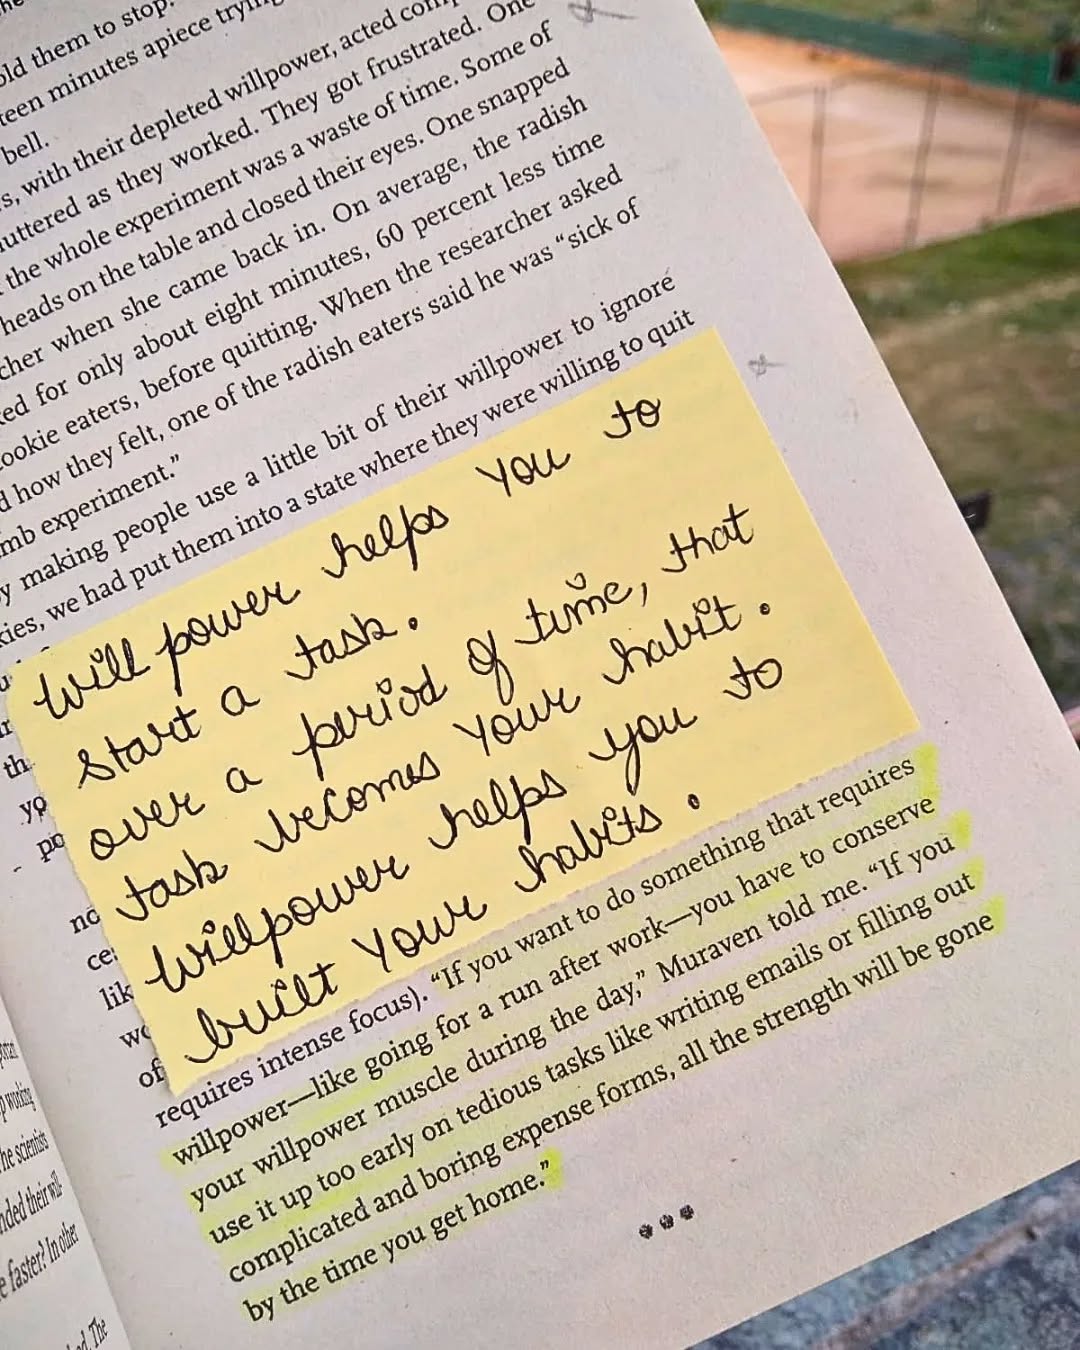 old them to stop.
teen minutes apiece
bell.
with their depleted willpower, acted
uttered as they worked. They got frustrated. One
the whole experiment was a waste of time. Some of
heads on the table and closed their eyes. One snapped
cher when she came back in. On average, the radish
ed for only about eight minutes, 60 percent less time
ookie eaters, before quitting. When the researcher asked
d how they felt, one of the radish eaters said he was “sick of
mb experiment.”
y making people use a little bit of their willpower to ignore
kies, we had put them into a state where they were willing to quit
Will power helps you to
start a task.
over a period of time, that
task becomes your habit.
Willpower helps you to
built your habits.
th
yo
po
no
ce
lik
wo
of
requires intense focus). “If you want to do something that requires
willpower—like going for a run after work—you have to conserve
your willpower muscle during the day,” Muraven told me. “If you
use it up too early on tedious tasks like writing emails or filling out
complicated and boring expense forms, all the strength will be gone
by the time you get home.”
working
he scientists
nded their will-
e faster? In other
The